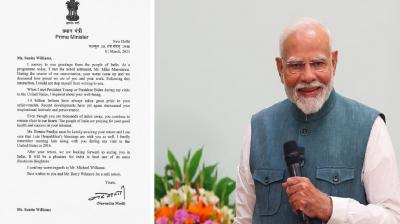 प्रधान मंत्री
Prime Minister
New Delhi
01 March, 2025
Ms. Sunita Williams,
I convey to you greetings from the people of India. At a
programme today, I met the noted astronaut, Mr. Mike Massimino.
During the course of our conversation, your name came up and we
discussed how proud we are of you and your work. Following this
interaction, I could not stop myself from writing to you.
When I met President Trump or President Biden during my visits
to the United States, I inquired about your well-being.
1.4 billion Indians have always taken great pride in your
achievements. Recent developments have yet again showcased your
inspirational fortitude and perseverance.
Even though you are thousands of miles away, you continue to
remain close to our hearts. The people of India are praying for your good
health and success in your mission.
Ms. Bonnie Pandya must be keenly awaiting your return and I am
sure that Late Deepakbhai's blessings are with you as well. I fondly
remember meeting him along with you during my visit to the United
States in 2016.
After your return, we are looking forward to seeing you in
India. It will be a pleasure for India to host one of its most
illustrious daughters.
I convey warm regards to Mr. Michael Williams.
Best wishes to you and Mr. Barry Wilmore for a safe return.
Yours,
(Narendra Modi)
Ms. Sunita Williams